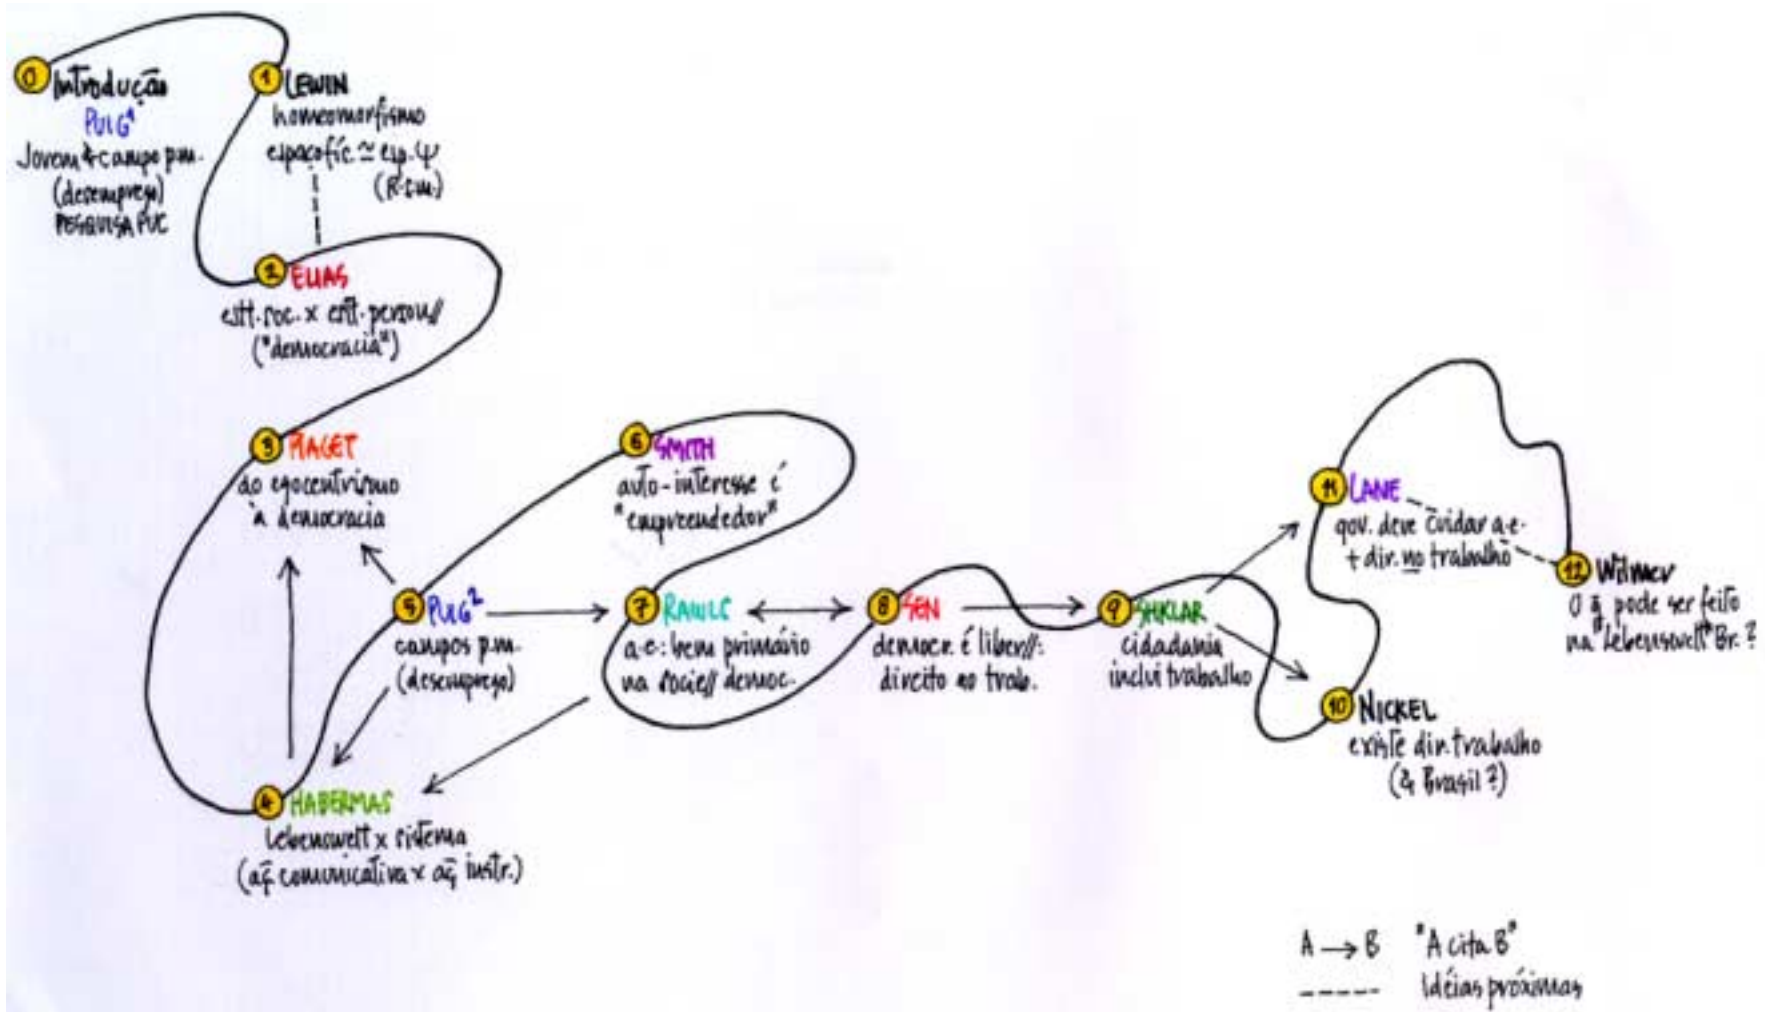 0 Introdução
PUIG¹
Jovem & campo p.m.
(desemprego)
PESQUISA PUC
1 LEWIN
homeomorfismo
espaço fíc ≃ esp. Ψ
2 ELIAS
estt. soc. x estt. person//
("democracia")
3 PIAGET
do egocentrismo
à democracia
4 HABERMAS
Lebenswelt x sistema
(aç̄ comunicativa x aç̄ instr.)
5 PUIG²
campos p.m.
(desemprego)
6 SMITH
auto-interesse é
"empreendedor"
7 RAWLS
a-e: bem primário
na socie// democ.
8 SEN
democr. é liber//:
direito ao trab.
9 SHKLAR
cidadania
inclui trabalho
10 NICKEL
existe dir. trabalho
(& Brasil?)
11 LANE
gov. deve cuidar a-e-
+ dir. no trabalho
12 Wilmer
O q̄ pode ser feito
na "Lebenswelt" Br.?
A → B "A cita B"
------ Idéias próximas